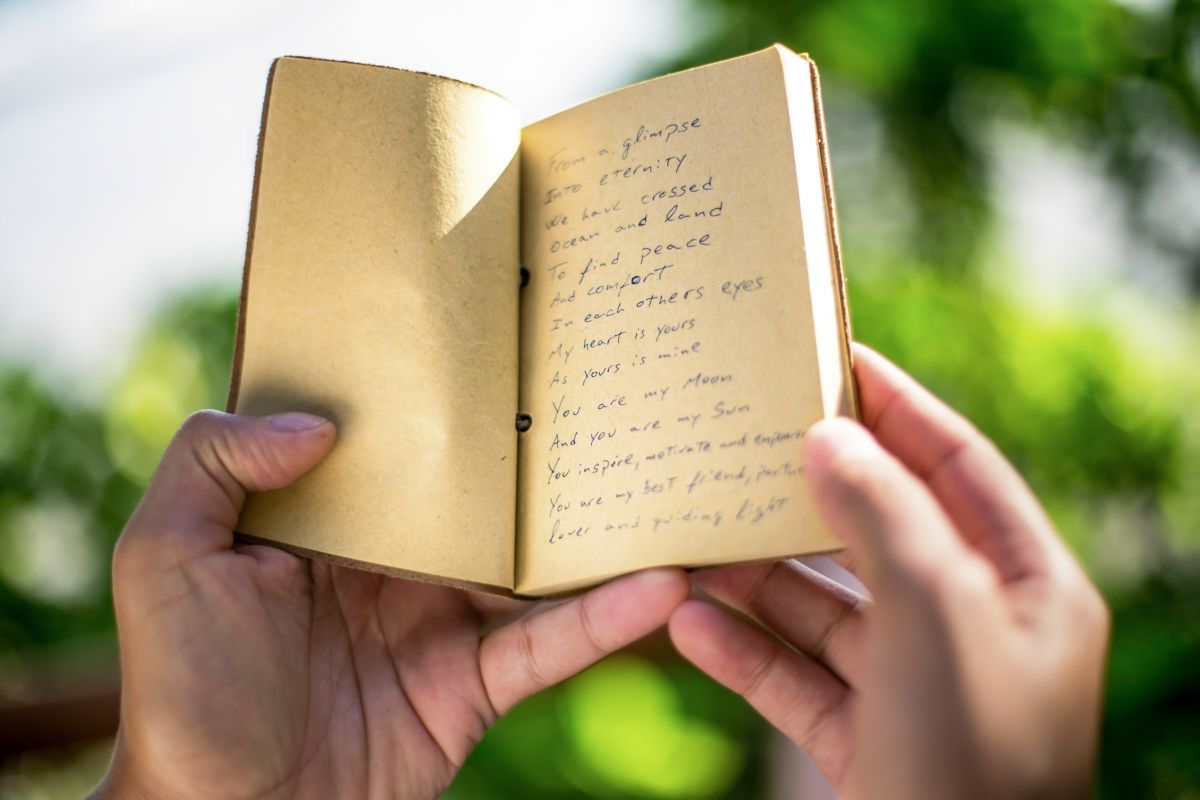 From a glimpse
Into eternity.
We have crossed
Ocean and land
To find peace
And comfort
In each others eyes
My heart is yours
As yours is mine
You are my Moon
And you are my Sun
You inspire, motivate and
You are my best friend,
lover and guiding light